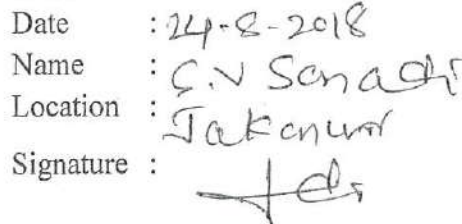 Date : 24-8-2018
Name : S.V Sanadi
Location : Jakanur
Signature :